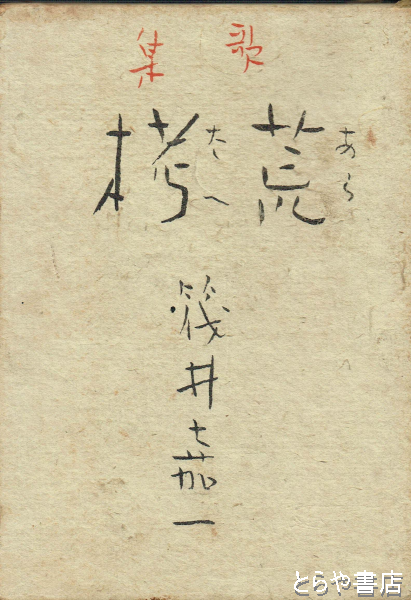 歌集
荒栲
あらたへ
筏井嘉一
とらや書店